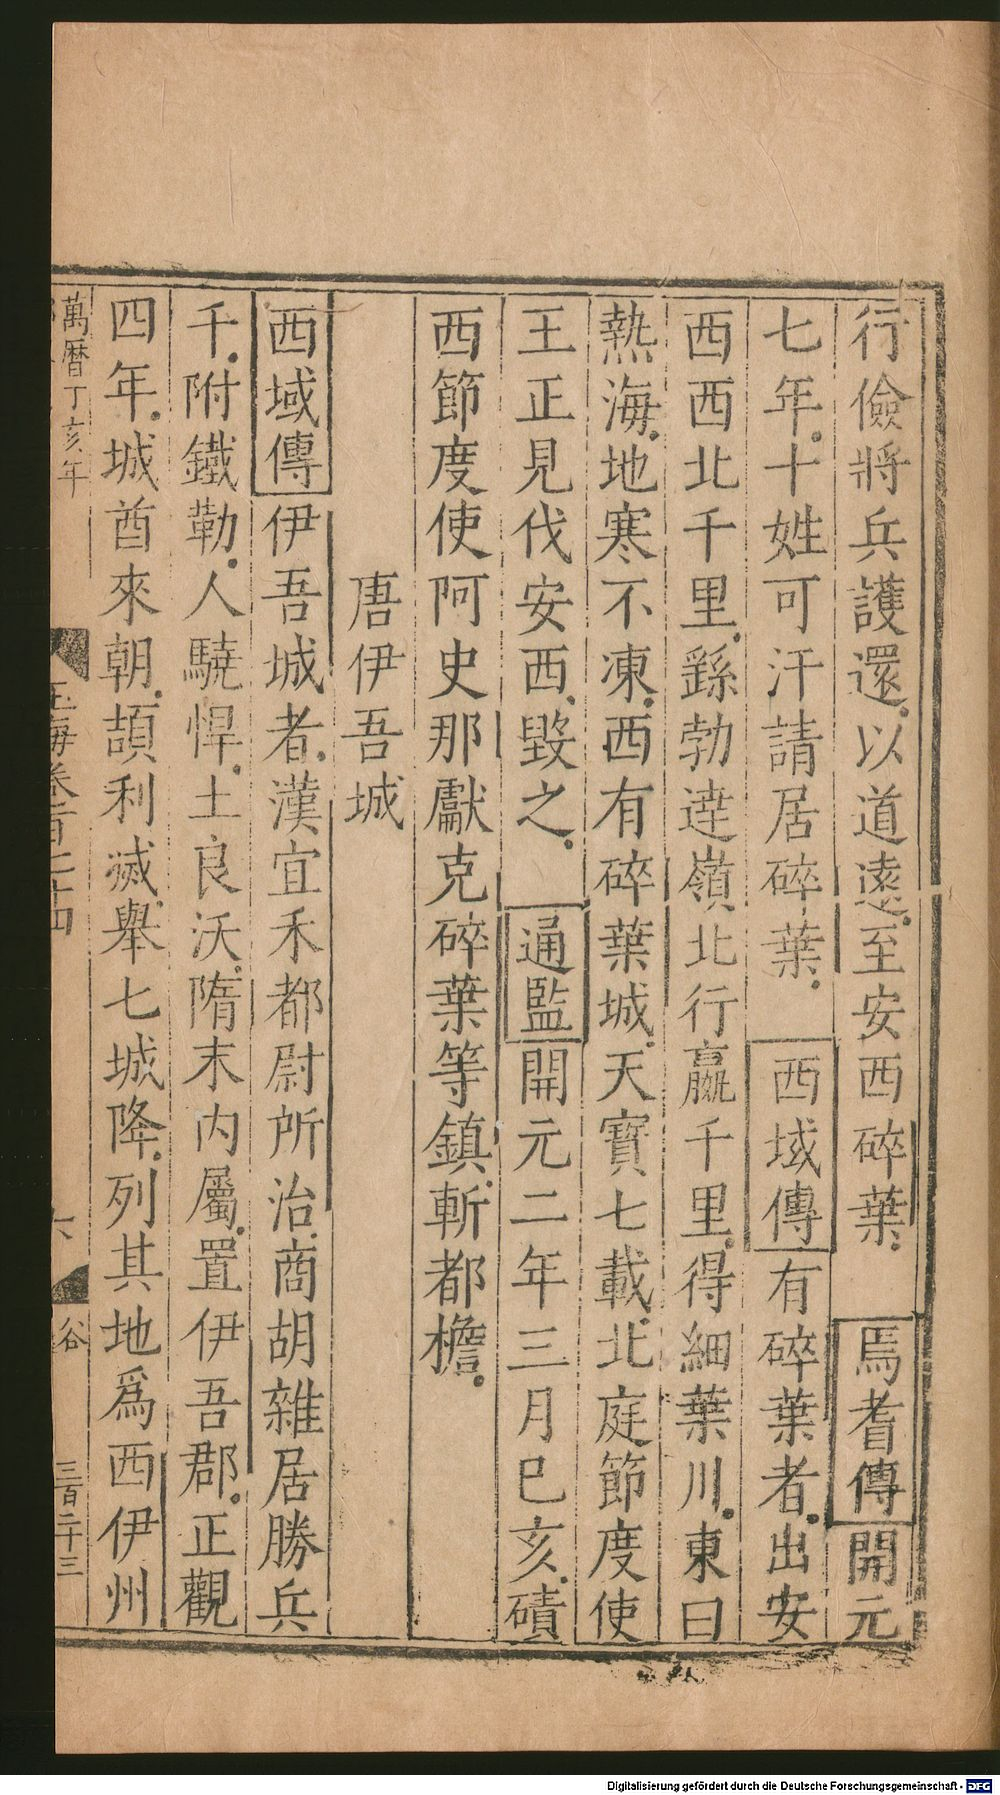 行儉將兵護還以道遠至安西碎葉 焉耆傳開元
七年十姓可汗請居碎葉 西域傳有碎葉者出安
西西北千里繇勃達嶺北行贏千里得細葉川東曰
熱海地寒不凍西有碎葉城天寶七載北庭節度使
王正見伐安西毀之 通監開元二年三月巳亥磧
西節度使阿史那獻克碎葉等鎮斬都檐
唐伊吾城
西域傳伊吾城者漢宜禾都尉所治商胡雜居勝兵
千附鐵勒人驍悍土良沃隋末內屬置伊吾郡正觀
四年城酋來朝頡利滅舉七城降列其地爲西伊州
萬曆丁亥年
玉海卷一百七十四
六
谷
三百二十三
Digitalisierung gefördert durch die Deutsche Forschungsgemeinschaft - DFG